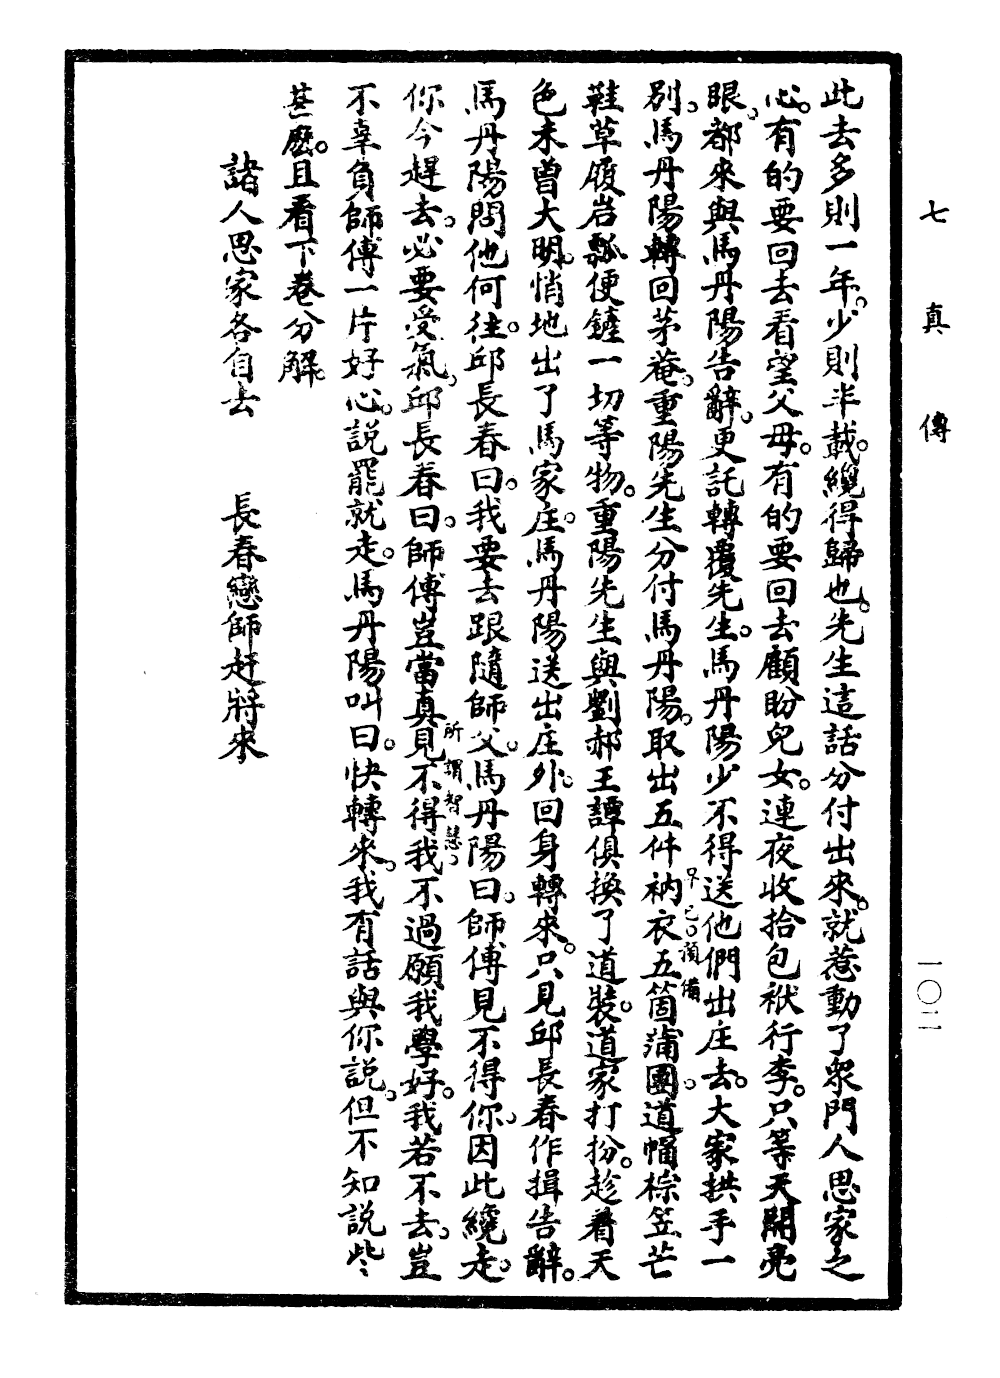 七真傳
一〇二
此去多則一年。少則半載。纔得歸也。先生這話分付出來。就惹動了眾門人思家之
心。有的要回去看望父母。有的要回去顧盼兒女。連夜收拾包袱行李。只等天開亮
眼。都來與馬丹陽告辭。更託轉覆先生。馬丹陽少不得送他們出庄去。大家拱手一
別。馬丹陽轉回茅菴。重陽先生分付馬丹陽。取出五件衲衣五箇蒲團。早已預備。道幅棕笠芒
鞋草履岩瓢便鏟一切等物。重陽先生與劉郝王譚俱換了道裝。道家打扮。趁着天
色未曾大明。悄地出了馬家庄。馬丹陽送出庄外。回身轉來。只見邱長春作揖告辭。
馬丹陽問他何往。邱長春曰。我要去跟隨師父。馬丹陽曰。師傅見不得你。因此纔走。
你今趕去。必要受氣。邱長春曰。師傅豈當真見不得我。所謂智慧。不過願我學好。我若不去。豈
不辜負師傅一片好心。說罷就走。馬丹陽叫曰。快轉來。我有話與你說。但不知說些
甚麼。且看下卷分解。
諸人思家各自去　長春戀師赶將來